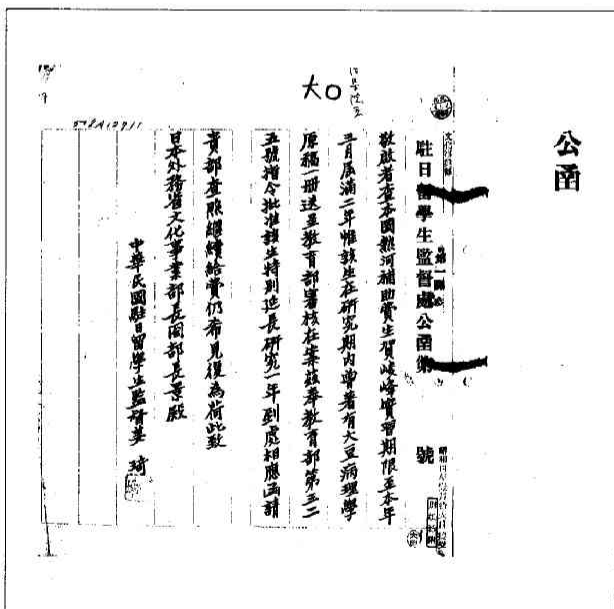 公函
駐日留學生監督處公函第
號
敬啟者查本國熱河補助費生賀峻峰實習期限至本年
三月屆滿二年惟該生在研究期內曾著有大豆病理學
原稿一冊送呈教育部審核在案茲奉教育部第五二
五號指令批准該生特別延長研究一年到處相應函請
貴部查照繼續給費仍希見復為荷此致
日本外務省文化事業部長岡部長景殿
中華民國駐日留學生監督姜琦